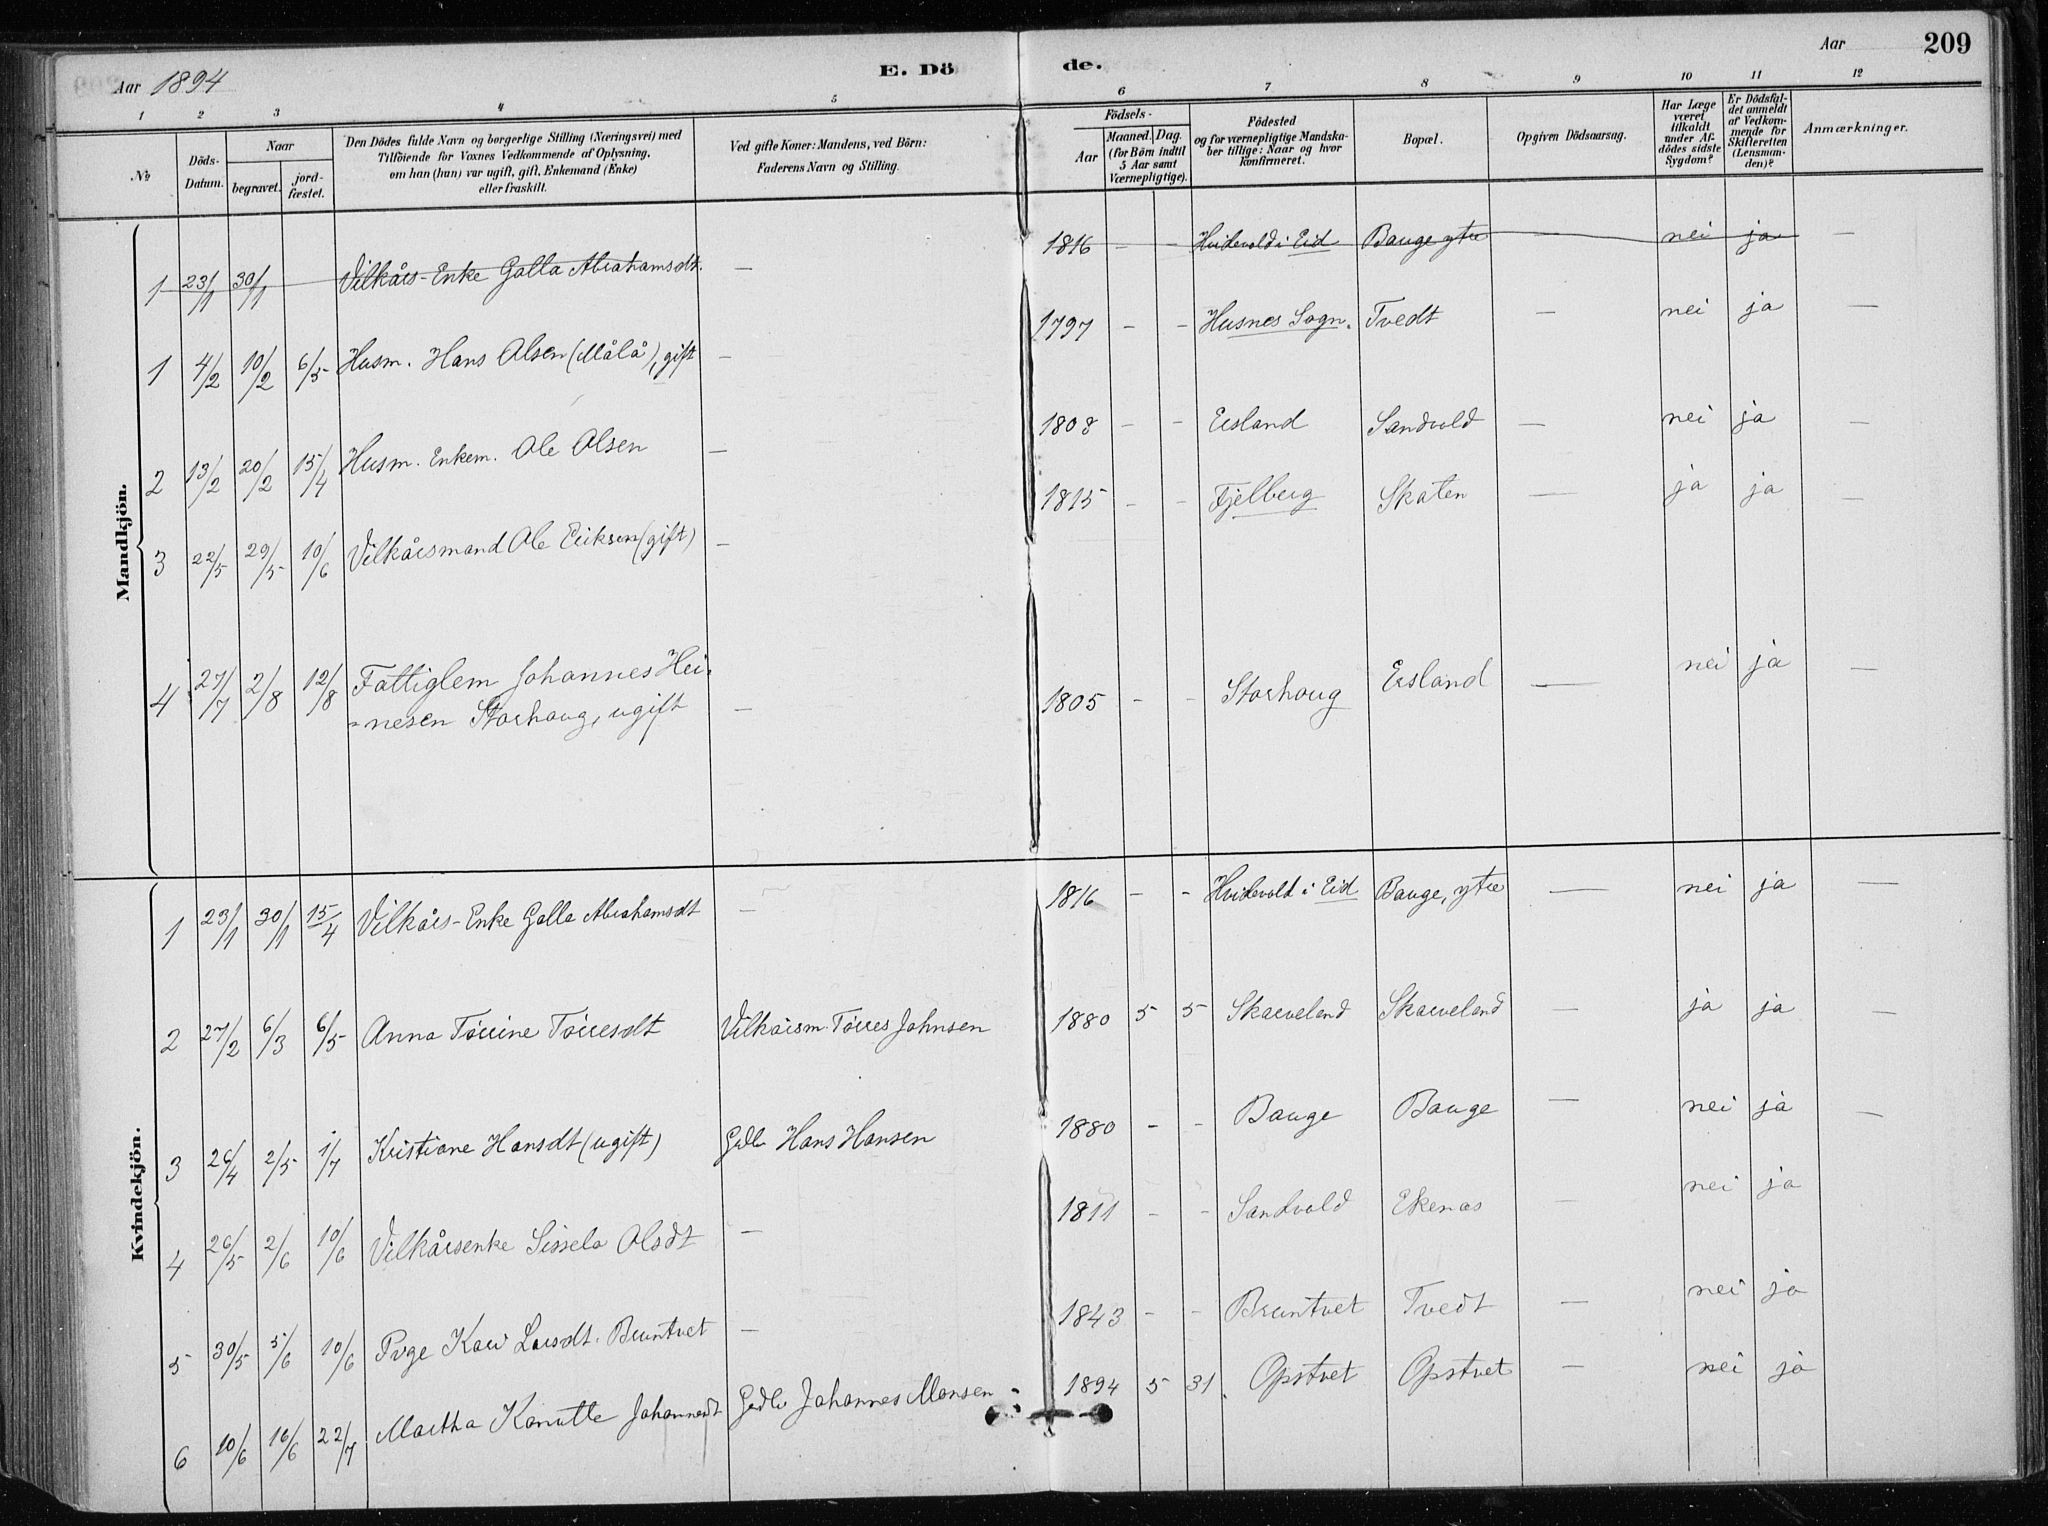 Aar 1894
E. Dö
de.
Aar
209
1 2 3 4 5 6 7 8 9 10 11 12
No
Döds-Datum.
Naar
begravet.
jord-fæstet.
Den Dödes fulde Navn og borgerlige Stilling (Næringsvei) med
Tilföiende for Voxnes Vedkommende af Oplysning,
om han (hun) var ugift, gift, Enkemand (Enke)
eller fraskilt.
Ved gifte Koner: Mandens, ved Börn:
Faderens Navn og Stilling.
Födsels-
Aar
Maaned. Dag.
(for Börn indtil
5 Aar samt
Værnepligtige).
Födested
og for værnepligtige Mandska-
ber tillige: Naar og hvor
konfirmeret.
Bopæl.
Opgiven Dödsaarsag.
Har Læge
været
tilkaldt
under Af-
dödes sidste
Sygdom?
Er Dödsfal-
det anmeldt
af Vedkom-
mende for
Skifteretten
(Lensman-
den)?
Anmærkninger.
Mandkjön.
1 23/1 30/1 Vilkårs-Enke Golla Abrahamsdt. — 1816 — — Hvidevold i Eid Bauge ytre — nei ja —
1 4/2 10/2 6/5 Husm. Hans Olsen (Målå), gift — 1797 - - Husnes Sogn. Tvedt — nei ja —
2 13/2 20/2 15/4 Husm. Enkem. Ole Olsen — 1808 - - Ersland Sandvold — nei ja —
3 22/5 29/5 10/6 Vilkårsmand Ole Eriksen (gift) — 1815 - - Fjelberg Skaten — ja ja —
4 27/7 2/8 12/8 Fattiglem Johannes Hei-
=nesen Storhoug, ugift — 1805 - - Storhoug Ersland — nei ja —
Kvindekjön.
1 23/1 30/1 15/4 Vilkårs-Enke Golla Abrahamsdt — 1816 - - Hvidevold i Eid Bauge, ytre — nei ja —
2 27/2 6/3 6/5 Anna Tørrine Tørresdt Vilkårsm. Tørres Johnsen 1880 5 5 Skarveland Skarveland — ja ja —
3 26/4 2/5 1/7 Kristiane Hansdt (ugift) Gdbr Hans Hansen 1880 - - Bauge Bauge — nei ja —
4 26/5 2/6 10/6 Vilkårsenke Sissela Olsdt — 1811 - - Sandvold Ekenæs — nei ja
5 30/5 5/6 10/6 Pige Kari Larsdt. Bruntvet — 1843 - - Bruntvet Tvedt — nei ja
6 10/6 16/6 22/7 Martha Kanutte Johannesdt Gdbr Johannes Monsen 1894 5 31. Opstvet Opstvet — nei ja